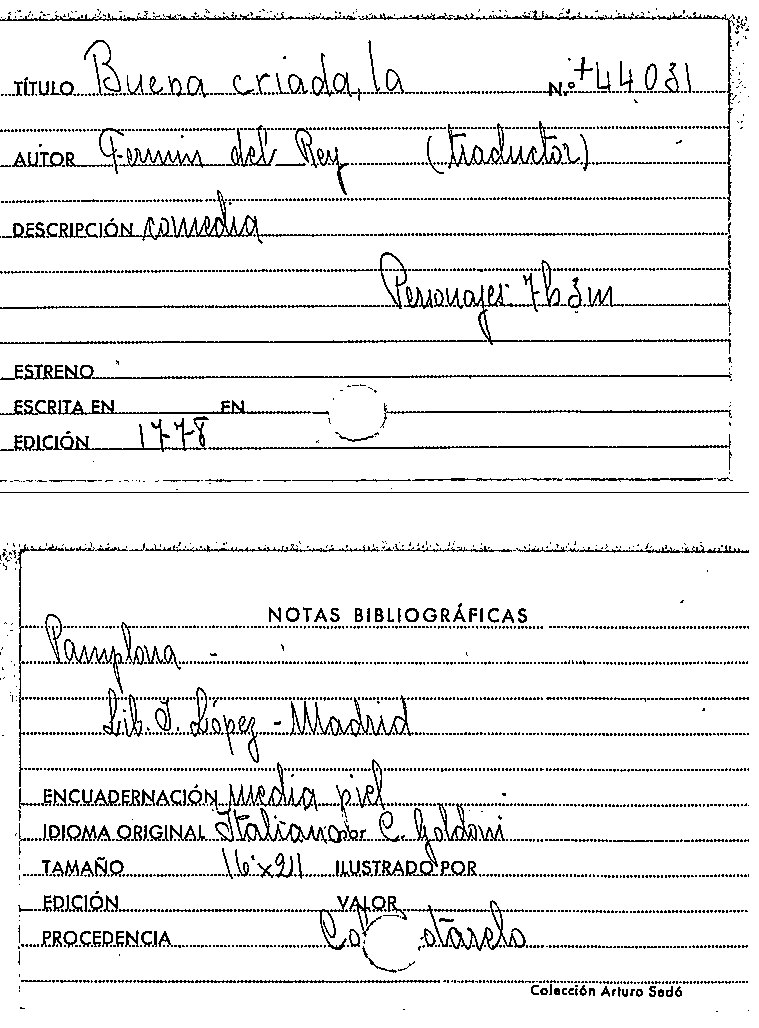 TÍTULO Buena criada, la N.º +44031
AUTOR Fermin del Rey (traductor)
DESCRIPCIÓN comedia
Personajes: 7h 3m
ESTRENO
ESCRITA EN EN
EDICIÓN 1778
NOTAS BIBLIOGRÁFICAS
Pamplona -
Lib. J. López - Madrid
ENCUADERNACIÓN media piel
IDIOMA ORIGINAL Italiano por C. Goldoni
TAMAÑO ILUSTRADO POR
EDICIÓN VALOR
PROCEDENCIA
Colección Arturo Sedó